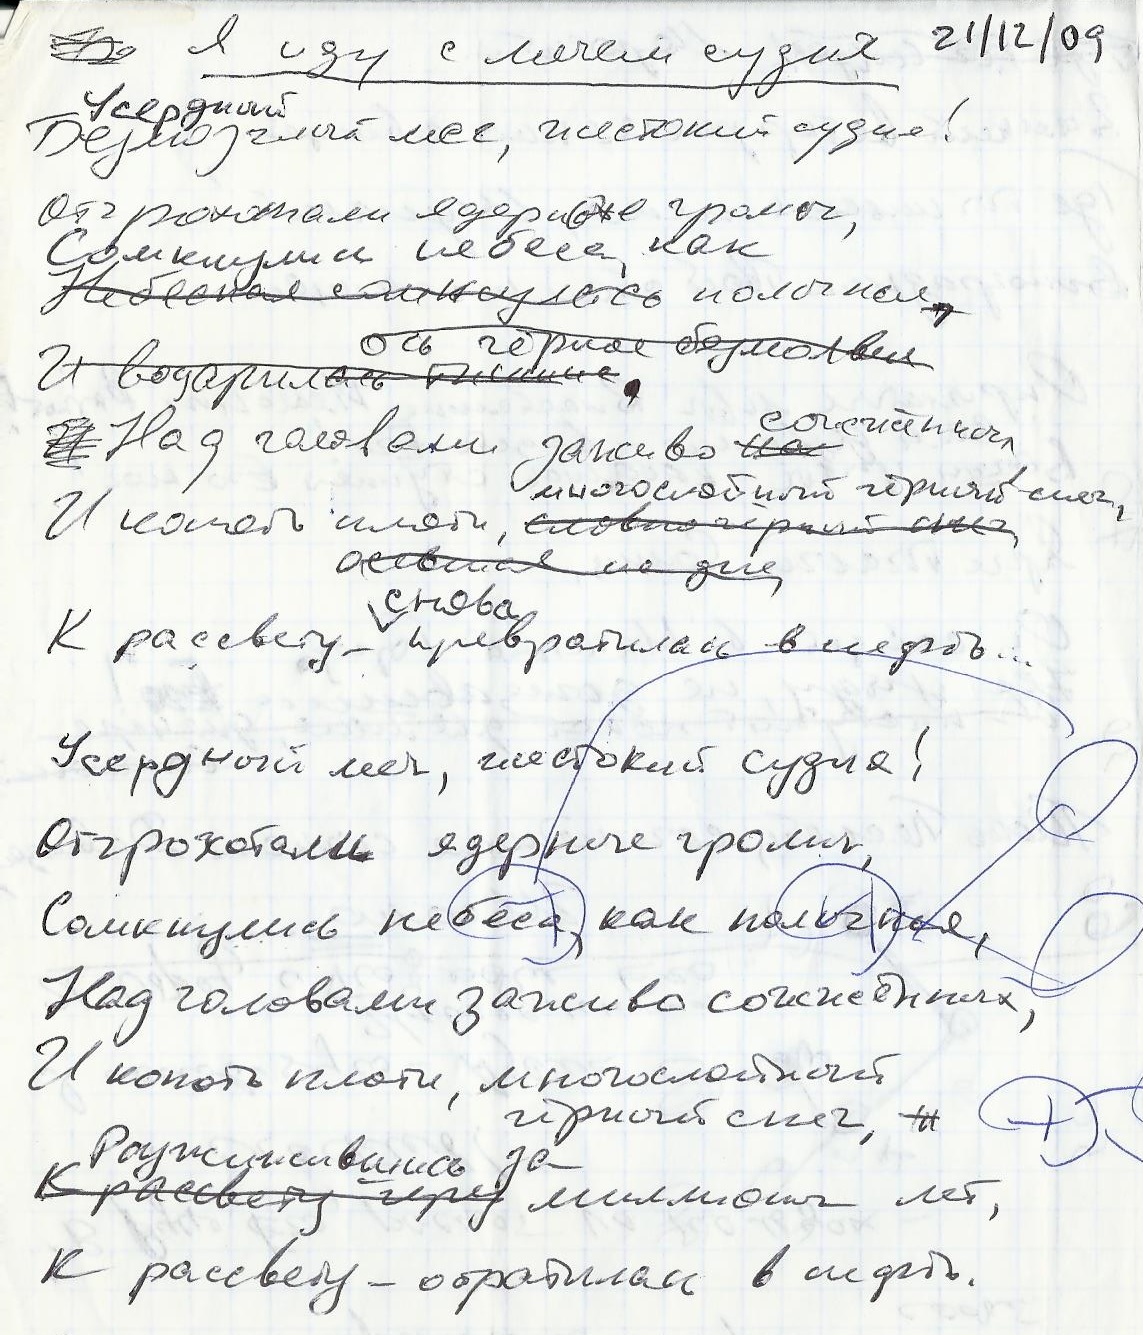 Я иду с мечем судия 21/12/09
Усердный
Безмозглый меч, жестокий судия!
Отгрохотали ядерные громы,
Сомкнулись небеса, как
Небесная сомкнулась полынья,
ось чёрное безмолвия
И водарилась тишина,
Над головами заживо сожжённых
И копоть плоти, многослойный чёрный снег,
словно чёрный снег
осевшая на дне,
снова
К рассвету – превратилась в нефть...
Усердный меч, жестокий судия!
Отгрохотали ядерные громы,
Сомкнулись небеса, как полынья,
Над головами заживо сожжённых,
И копоть плоти, многослойный
чёрный снег,
Разжижившись за
К рассвету через миллионы лет,
К рассвету – обратилась в нефть.